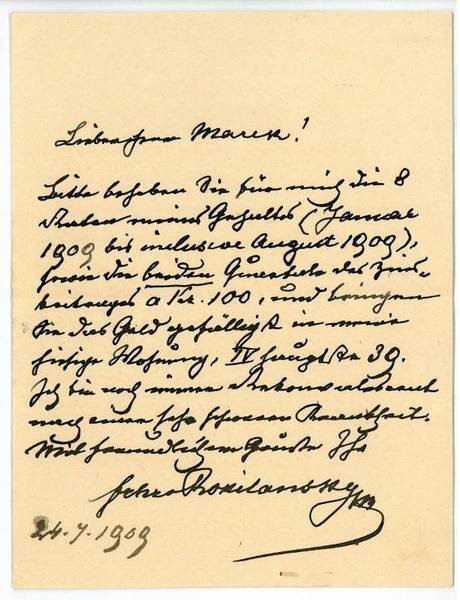 Lieber Herr Marek!
Bitte beheben Sie für mich die 8
Raten meines Gehaltes (Januar
1909 bis inclusive August 1909),
sowie die beiden Quartale des Zins-
beitrages a Kr. 100, und bringen
Sie das Geld gefälligst in meine
hiesige Wohnung, IV 39.
Ich bin noch immer Rekonvalescent
nach einer sehr schweren Krankheit.
Mit freundlichem Gruße Ihr
Rokitansky
24.7.1909